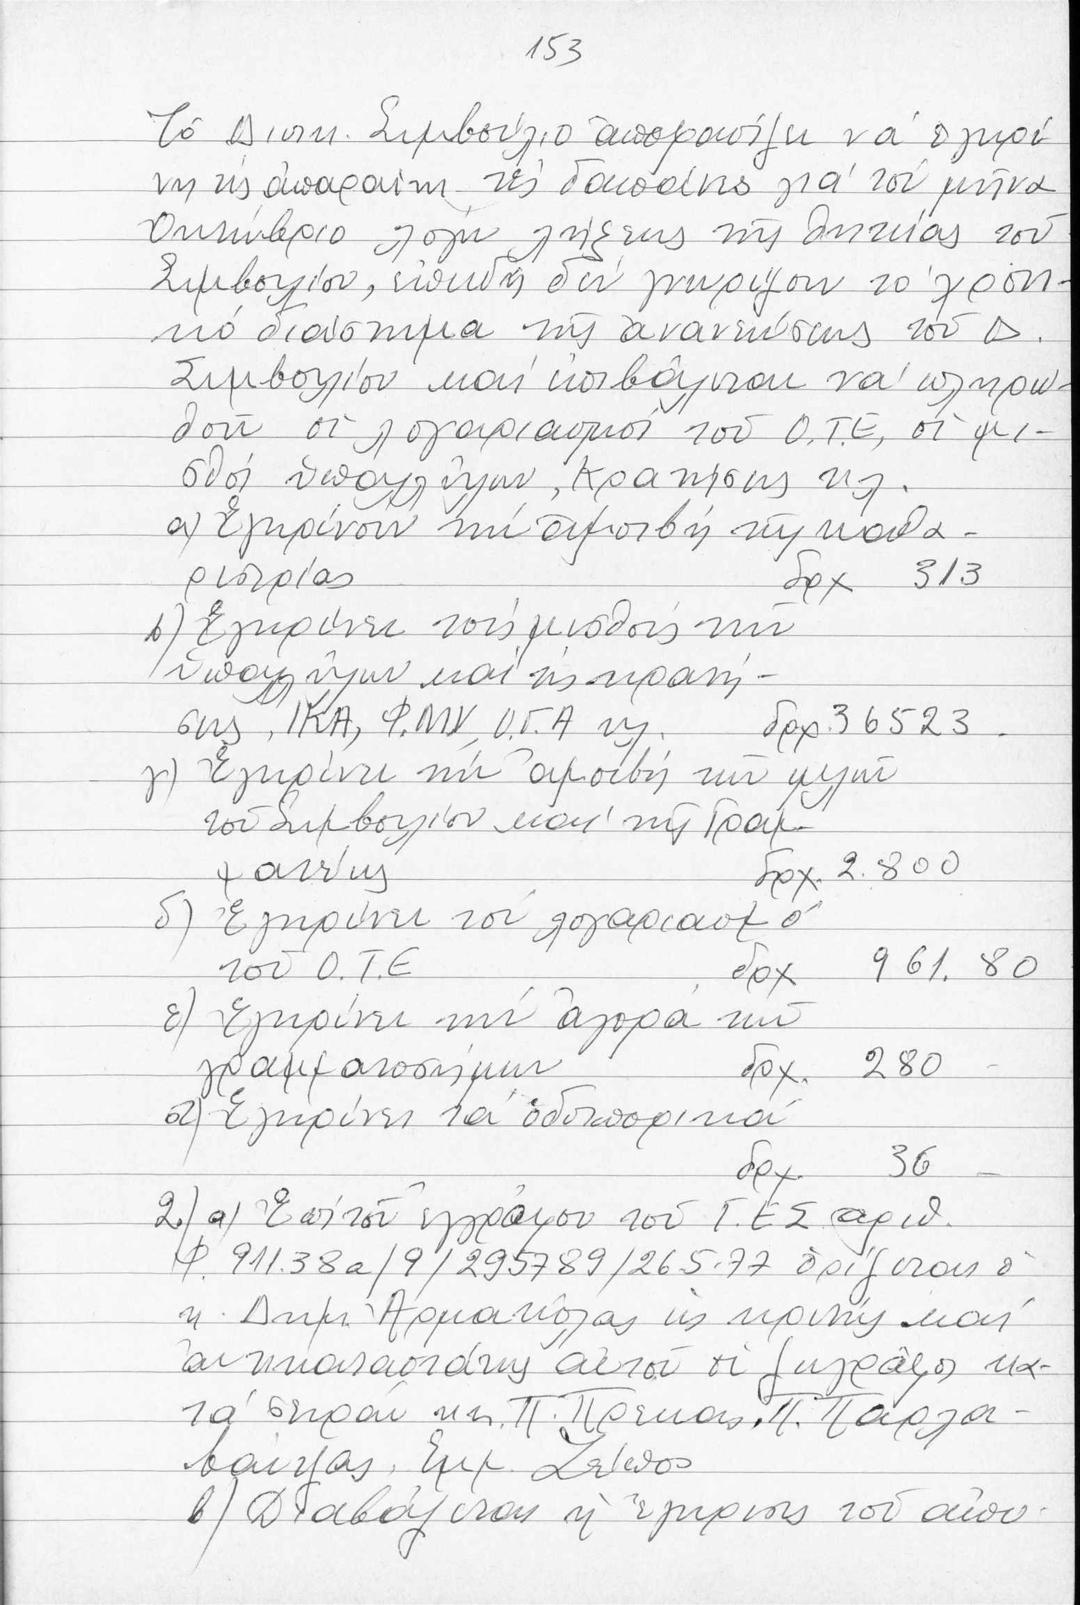 153
Τό Διοικ. Συμβούλιο ἀποφασίζει νά ἐγκρί
νη τίς ἀπαραίτητες δαπάνες γιά τόν μῆνα
Ὀκτώβριο λόγω λήξεως τῆς θητείας τοῦ
Συμβουλίου, ἐπειδή δέν γνωρίζουν τό χρονι-
κό διάστημα τῆς ἀνανεώσεως τοῦ Δ.
Συμβουλίου καί ἐπιβάλλεται νά πληρω-
θοῦν οἱ λογαριασμοί τοῦ Ο.Τ.Ε, οἱ μι-
σθοί ὑπαλλήλων, Κρατήσεις κλ.
α) Ἐγκρίνουν τήν ἀμοιβή τῆς καθα-
ριστρίας δρχ 313
β) Ἐγκρίνει τούς μισθούς τῶν
ὑπαλλήλων καί τίς κρατή-
σεις, ΙΚΑ, Φ.ΜΥ, Ο.Γ.Α κλ. δρχ. 36523.
γ) Ἐγκρίνει τήν ἀμοιβή τῶν μελῶν
τοῦ Συμβουλίου καί τῆς Γραμ-
ματέως δρχ. 2.800
δ) Ἐγκρίνει τόν λογαριασμό
τοῦ Ο.Τ.Ε δρχ 961.80
ε) Ἐγκρίνει τήν ἀγορά τῶν
γραμματοσήμων δρχ. 280 -
στ) Ἐγκρίνει τά ὁδοιπορικά
δρχ. 36 -
2.) α) Ἐπί τοῦ ἐγγράφου τοῦ Γ.Ε.Σ ἀριθ.
Φ. 911.38α/9/295789/26.5.77 ὁρίζεται ὁ
κ. Δημ. Ἁρμακόλας ὡς κριτής καί
ἀντικαταστάτης αὐτοῦ οἱ ζωγράφοι κα-
τά σειράν κκ. Π. Πρέκας, Π. Παρλα-
βάντζας, Ἐμμ. Ζέππος
β) Διαβάζεται ἡ ἔγκρισις τοῦ ἀπο-